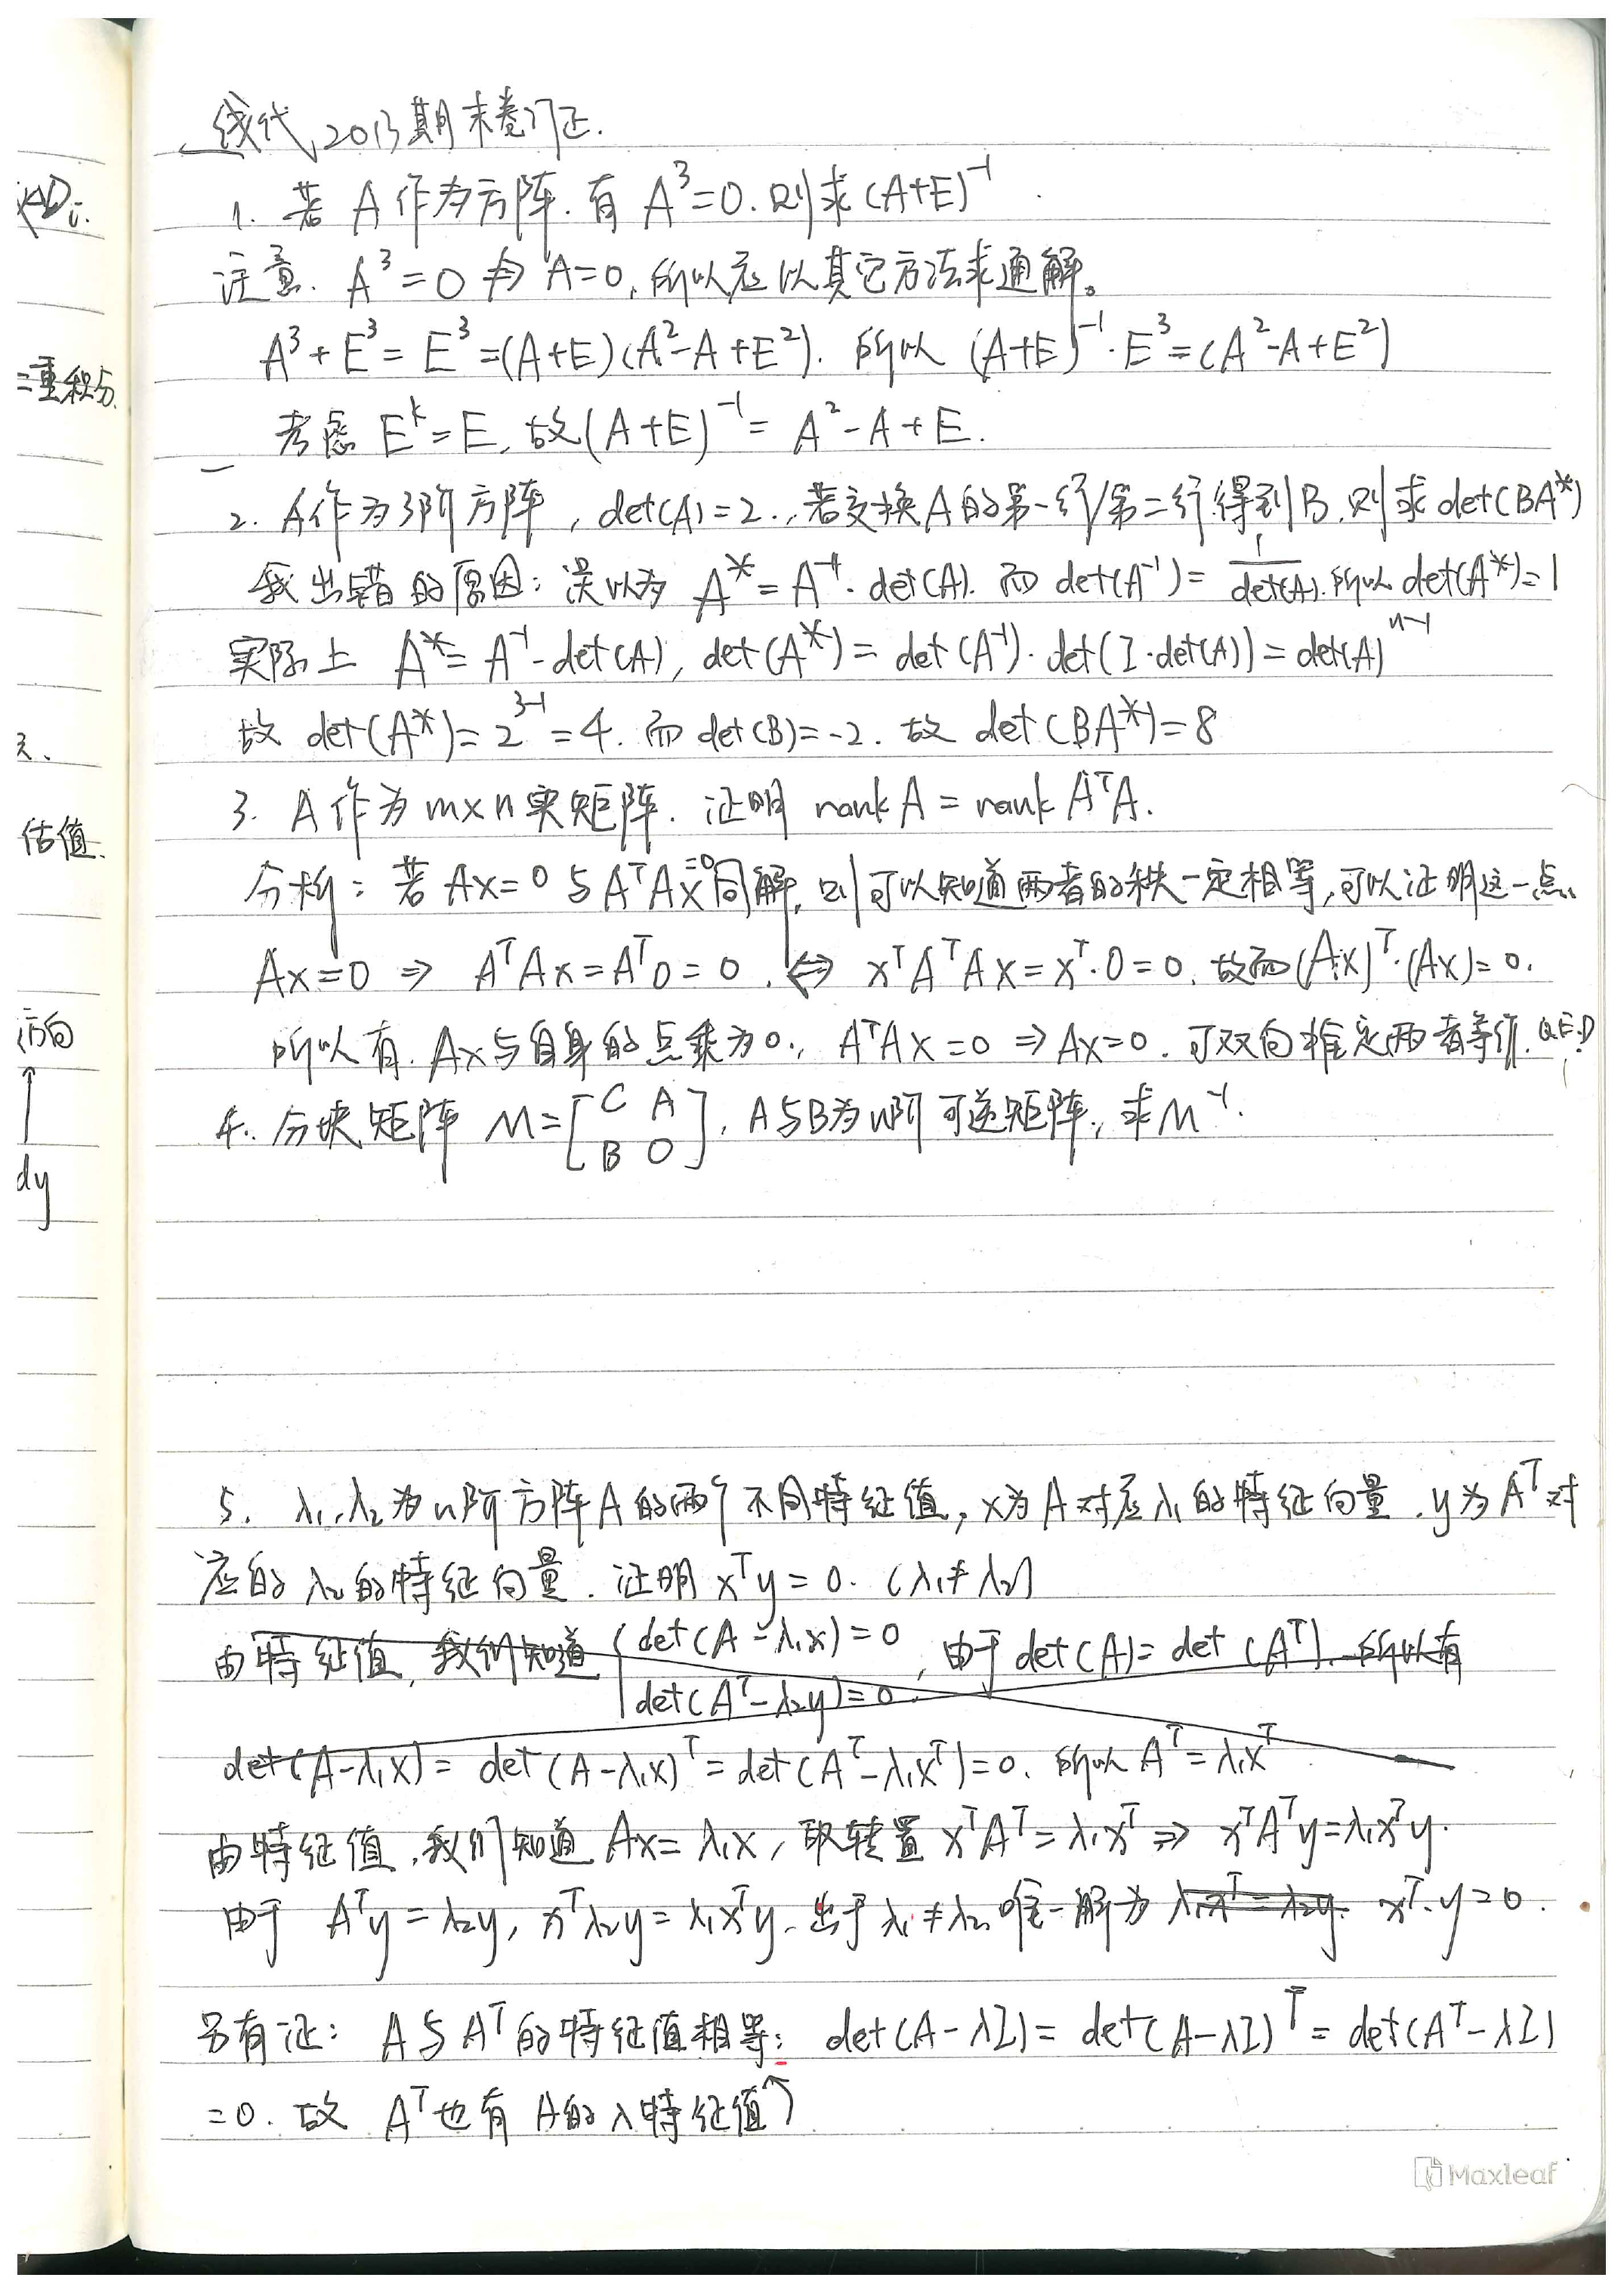 线代 2013期末卷订正.
1. 若 A 作为方阵. 有 A³=0. 则求 (A+E)⁻¹
注意. A³=0 ⇏ A=0, 所以应以其它方法求通解。
A³+E³=E³=(A+E)(A²-A+E²). 所以 (A+E)⁻¹·E³=(A²-A+E²)
考虑 Eᵏ=E, 故(A+E)⁻¹=A²-A+E.
2. A作为3阶方阵, det(A)=2., 若交换A的第一行/第二行得到B, 则求det(BA*)
我出错的原因: 误以为 A*=A⁻¹·det(A). 而 det(A⁻¹)=1/det(A). 所以 det(A*)=1
实际上 A*=A⁻¹·det(A), det(A*)=det(A⁻¹)·det(I·det(A))=det(A)ⁿ⁻¹
故 det(A*)=2³⁻¹=4. 而 det(B)=-2. 故 det(BA*)=8
3. A作为m×n实矩阵. 证明 rank A = rank AᵀA.
分析: 若 Ax=0 与 AᵀAx=0同解, 则可以知道两者的秩一定相等, 可以证明这一点.
Ax=0 ⇒ AᵀAx=Aᵀ0=0. ⇔ xᵀAᵀAx=xᵀ·0=0. 故而(Ax)ᵀ·(Ax)=0.
所以有. Ax与自身的点乘为0., AᵀAx=0 ⇒ Ax=0. 可双向推定两者等价. Q.E.D
4. 分块矩阵 M=[C A
B O], A与B为n阶可逆矩阵, 求M⁻¹.
5. λ₁,λ₂为n阶方阵A的两个不同特征值, x为A对应λ₁的特征向量. y为Aᵀ对
应的λ₂的特征向量. 证明xᵀy=0. (λ₁≠λ₂)
由特征值, 我们知道 {det(A-λ₁x)=0
det(Aᵀ-λ₂y)=0, 由于det(A)=det(Aᵀ). 所以有
det(A-λ₁x)=det(A-λ₁x)ᵀ=det(Aᵀ-λ₁xᵀ)=0. 所以Aᵀ=λ₁xᵀ
由特征值, 我们知道 Ax=λ₁x, 取转置 xᵀAᵀ=λ₁xᵀ ⇒ xᵀAᵀy=λ₁xᵀy.
由于 Aᵀy=λ₂y, xᵀλ₂y=λ₁xᵀy. 出于λ₁≠λ₂, 唯一解为 λ₁xᵀ=λ₂y. xᵀ·y=0.
另有证: A与Aᵀ的特征值相等: det(A-λI)=det(A-λI)ᵀ=det(Aᵀ-λI)
=0. 故 Aᵀ也有A的λ特征值↑
二重积分.
估值.
方向
↑
dy
Maxleaf